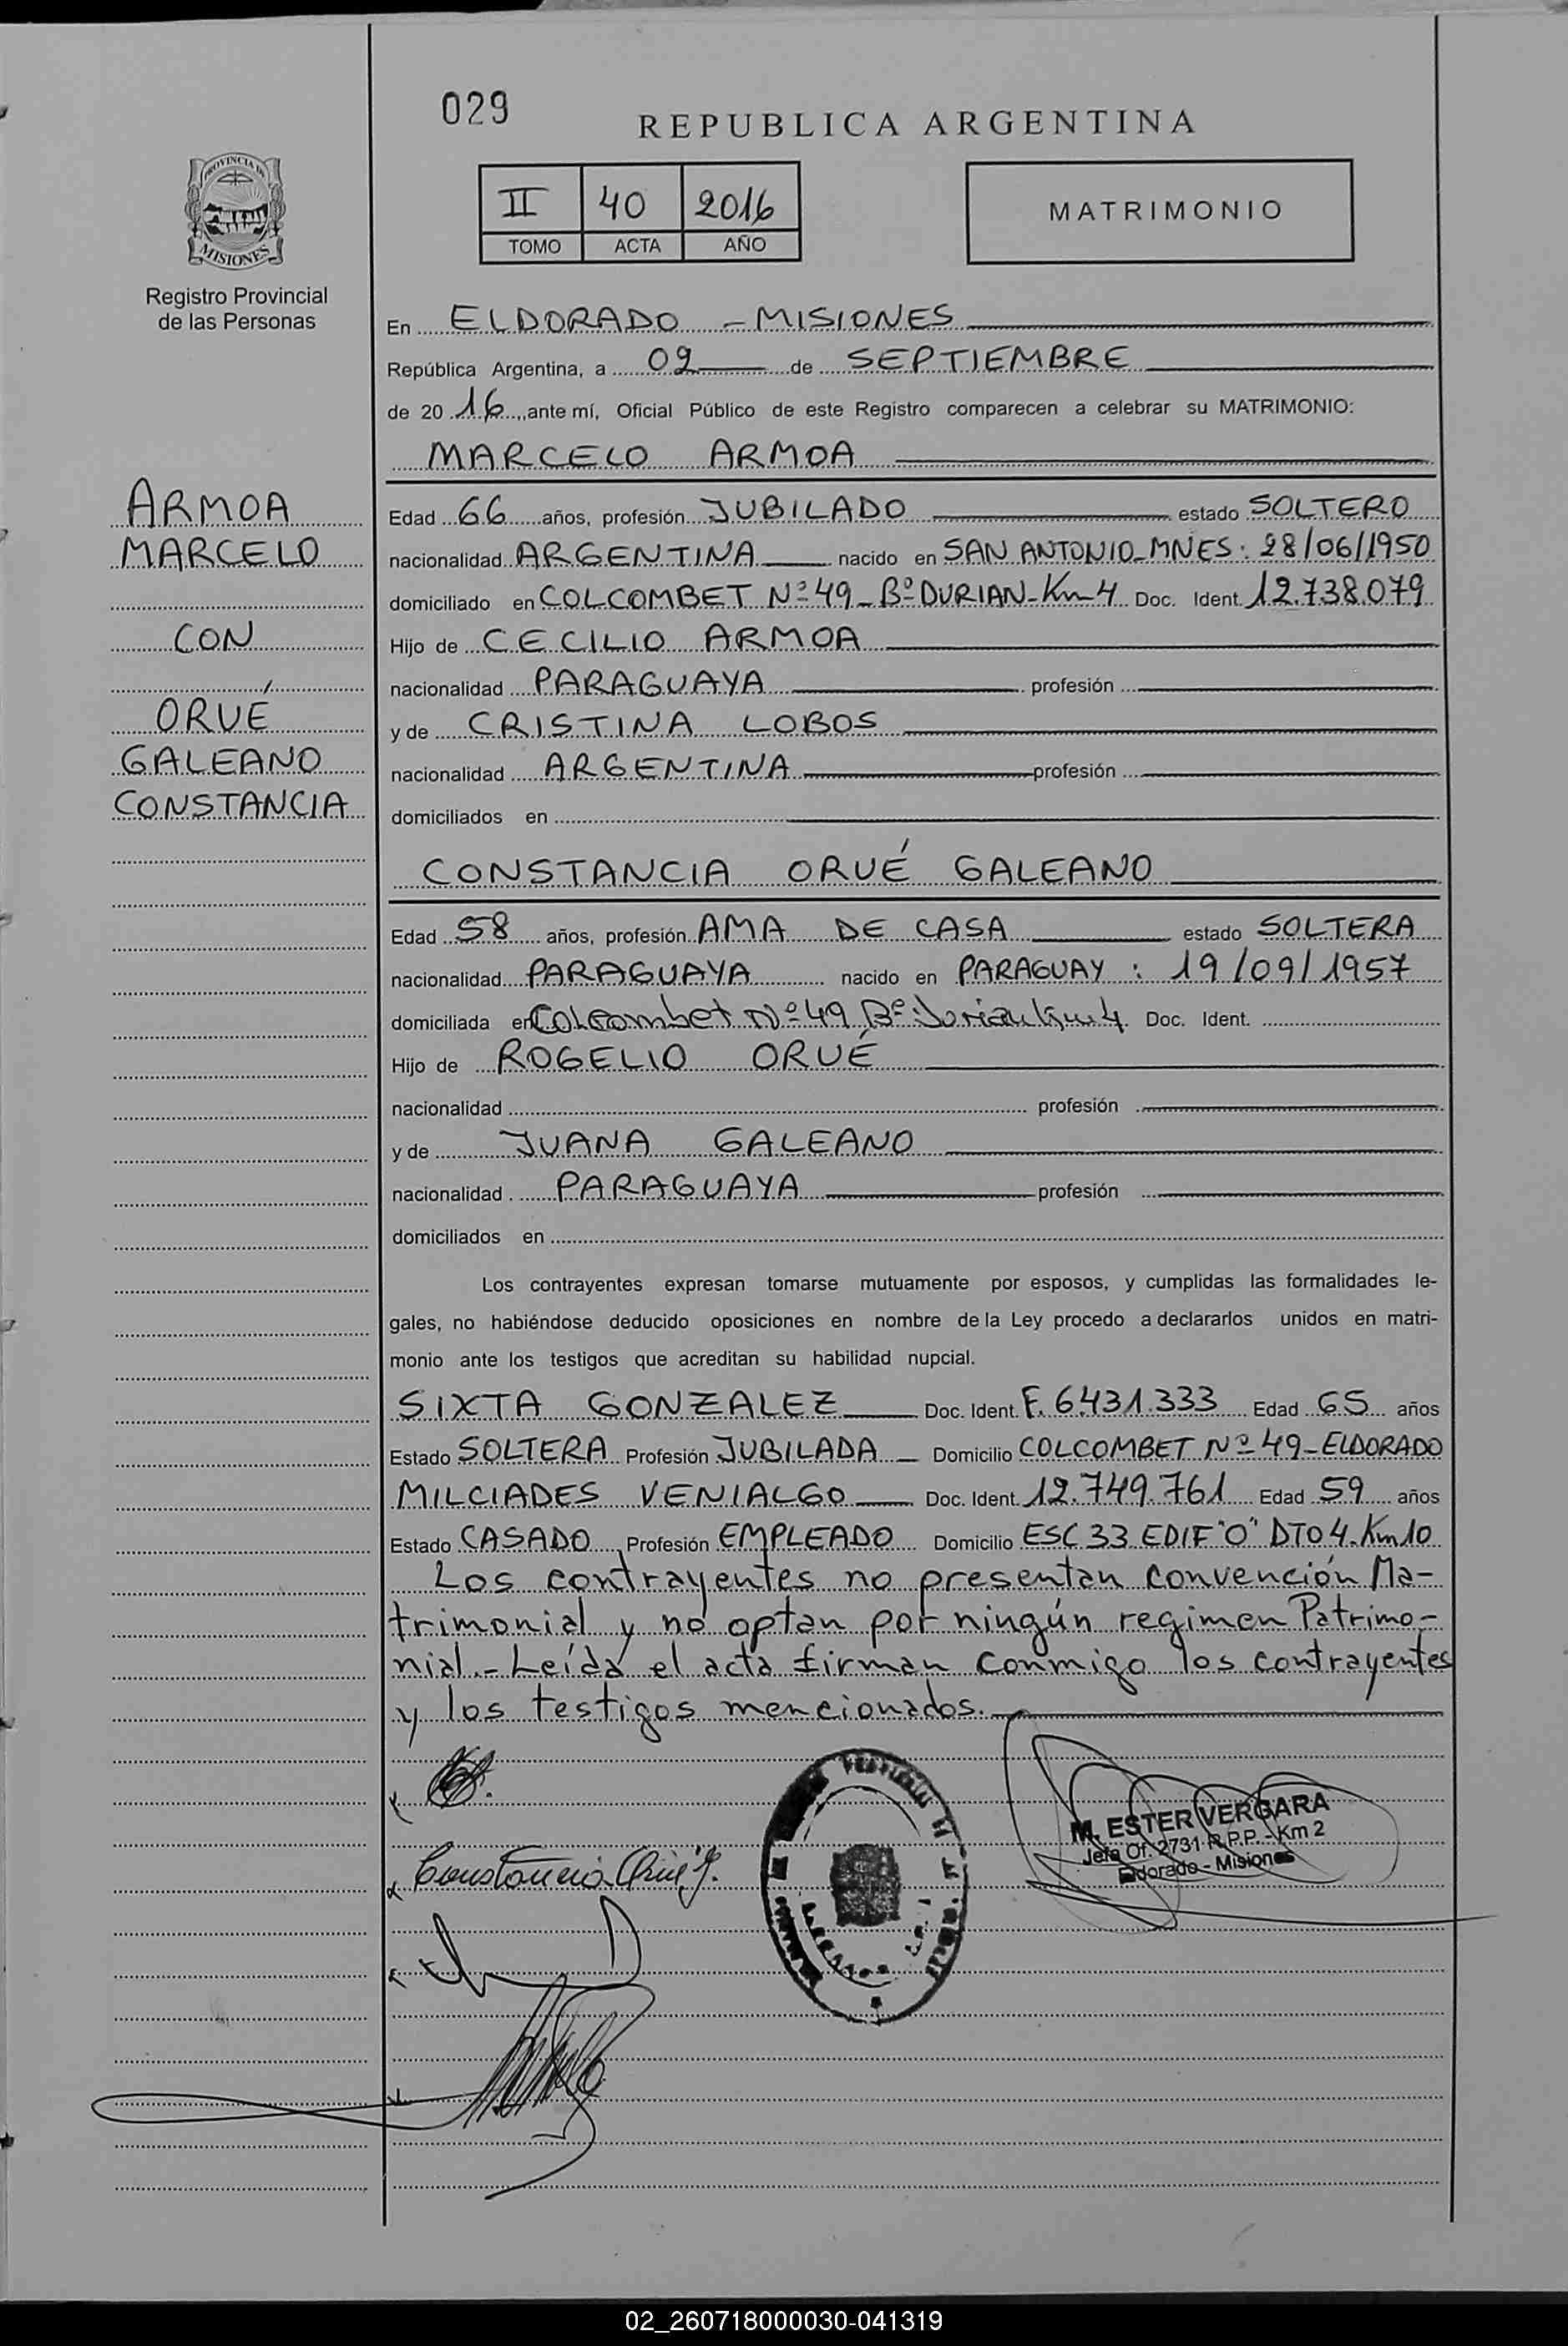 029
REPUBLICA ARGENTINA
PROVINCIA DE
MISIONES
Registro Provincial
de las Personas
II 40 2016
TOMO ACTA AÑO
MATRIMONIO
En ELDORADO - MISIONES
República Argentina, a 09 de SEPTIEMBRE
de 20 16, ante mí, Oficial Público de este Registro comparecen a celebrar su MATRIMONIO:
MARCELO ARMOA
ARMOA
MARCELO
CON
ORUÉ
GALEANO
CONSTANCIA
Edad 66 años, profesión JUBILADO estado SOLTERO
nacionalidad ARGENTINA nacido en SAN ANTONIO-MNES: 28/06/1950
domiciliado en COLCOMBET Nº 49-Bº DURIAN-Km 4 Doc. Ident. 12.738.079
Hijo de CECILIO ARMOA
nacionalidad PARAGUAYA profesión
y de CRISTINA LOBOS
nacionalidad ARGENTINA profesión
domiciliados en
CONSTANCIA ORUÉ GALEANO
Edad 58 años, profesión AMA DE CASA estado SOLTERA
nacionalidad PARAGUAYA nacido en PARAGUAY: 19/09/1957
domiciliada en Colcombet Nº 49 Bº Dorian Km 4. Doc. Ident.
Hijo de ROGELIO ORUÉ
nacionalidad profesión
y de JUANA GALEANO
nacionalidad PARAGUAYA profesión
domiciliados en
Los contrayentes expresan tomarse mutuamente por esposos, y cumplidas las formalidades le-
gales, no habiéndose deducido oposiciones en nombre de la Ley procedo a declararlos unidos en matri-
monio ante los testigos que acreditan su habilidad nupcial.
SIXTA GONZALEZ Doc. Ident. F. 6.431.333 Edad 65 años
Estado SOLTERA Profesión JUBILADA Domicilio COLCOMBET Nº 49-ELDORADO
MILCIADES VENIALGO Doc. Ident. 12.749.761 Edad 59 años
Estado CASADO Profesión EMPLEADO Domicilio ESC 33 EDIF "O" DTO 4. Km 10
Los contrayentes no presentan convención Ma-
trimonial y no optan por ningún regimen Patrimo-
nial.- Leída el acta firman conmigo los contrayentes
y los testigos mencionados.
M. ESTER VERGARA
Jefa Of. 2731 R.P.P. - Km 2
Eldorado - Misiones
Constancia Orué G.
02_260718000030-041319